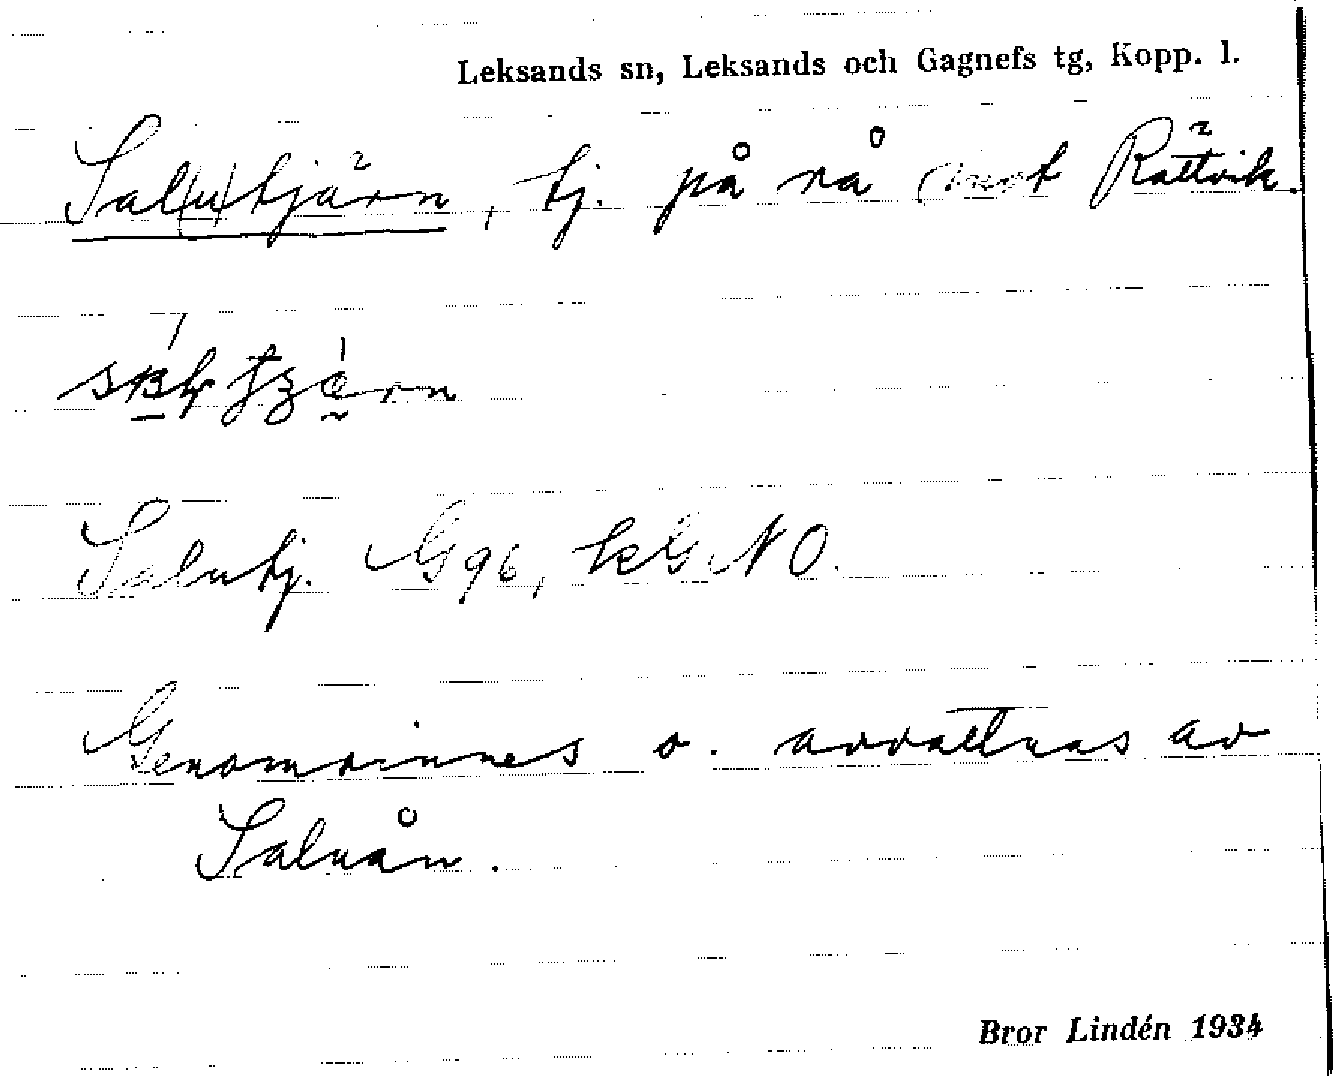 Leksands sn, Leksands och Gagnefs tg, Kopp. l.
Sal(u)tjärn, tj. på rå mot Rättvik.
Salutj. G96, kG NO.
Genomrinnes o. avvattnas av
Saluån.
Bror Lindén 1934